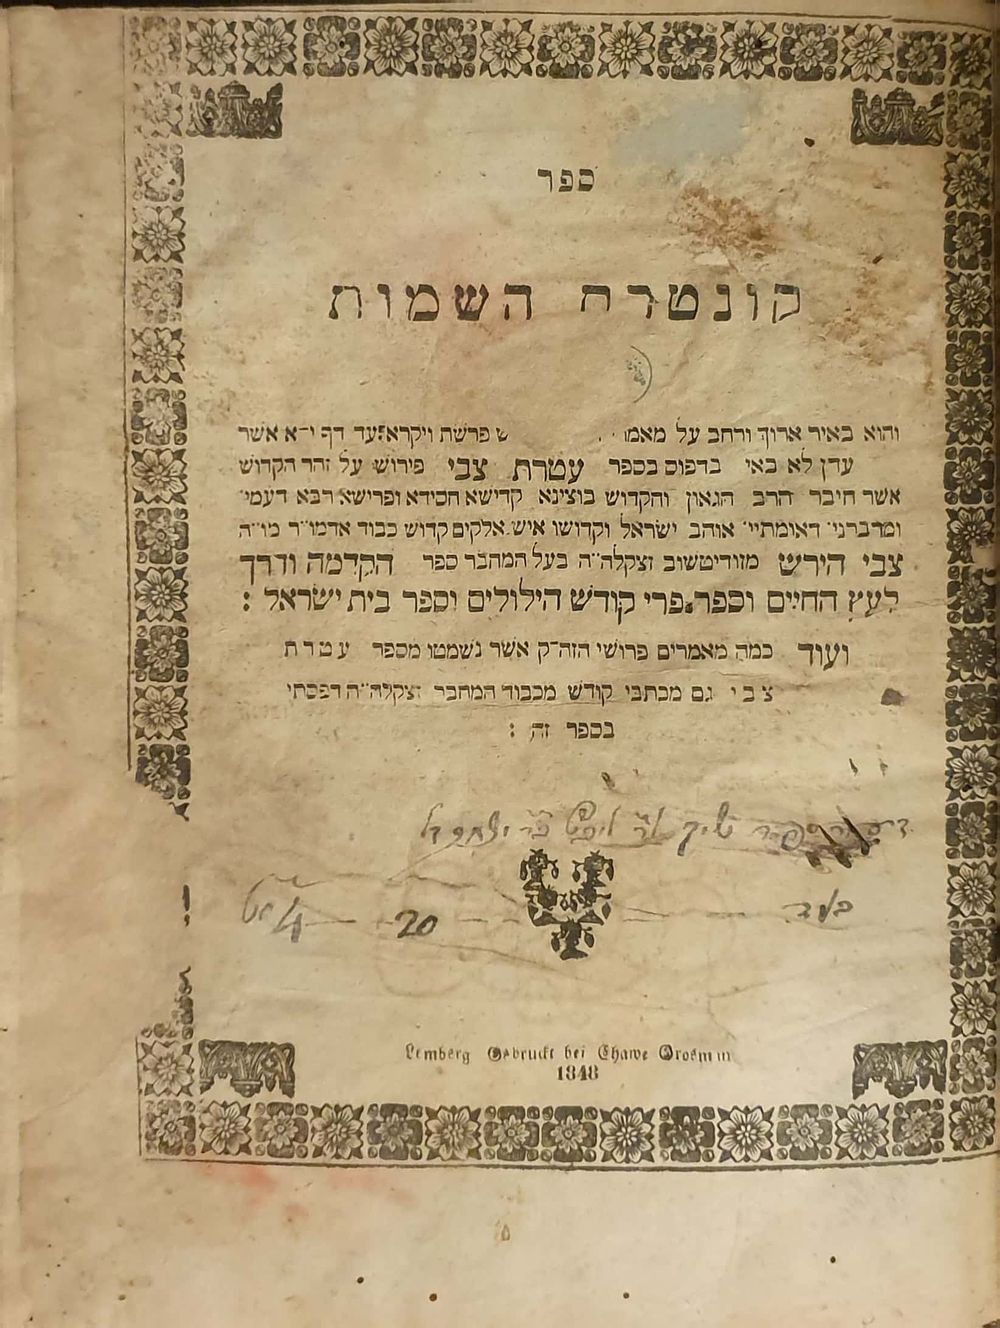 ספר
קונטרס השמות
והוא באיר ארוך ורחב על מאמ פרשת ויקרא עד דף י״א אשר
עדן לא באי בדפוס בספר עטרת צבי פירוש על זהר הקדוש
אשר חיבר הרב הגאון והקדוש בוצינא קדישא חסידא ופרישא רבא דעמי׳
ומדברני׳ דאומתיי׳ אוהב ישראל וקדושו איש אלקים קדוש כבוד אדמו״ר מו״ה
צבי הירש מזודיטשוב זצקלה״ה בעל המחבר ספר הקדמה ודרך
לעץ החיים וספר פרי קודש הילולים וספר בית ישראל :
ועוד כמה מאמרים פרושי הזה״ק אשר נשמטו מספר עטרת
צבי גם מכתבי קודש מכבוד המחבר זצקלה״ה דפסתי
בספר זה :
20 4
Lemberg Gedruckt bei Chawe Grosmann
1848